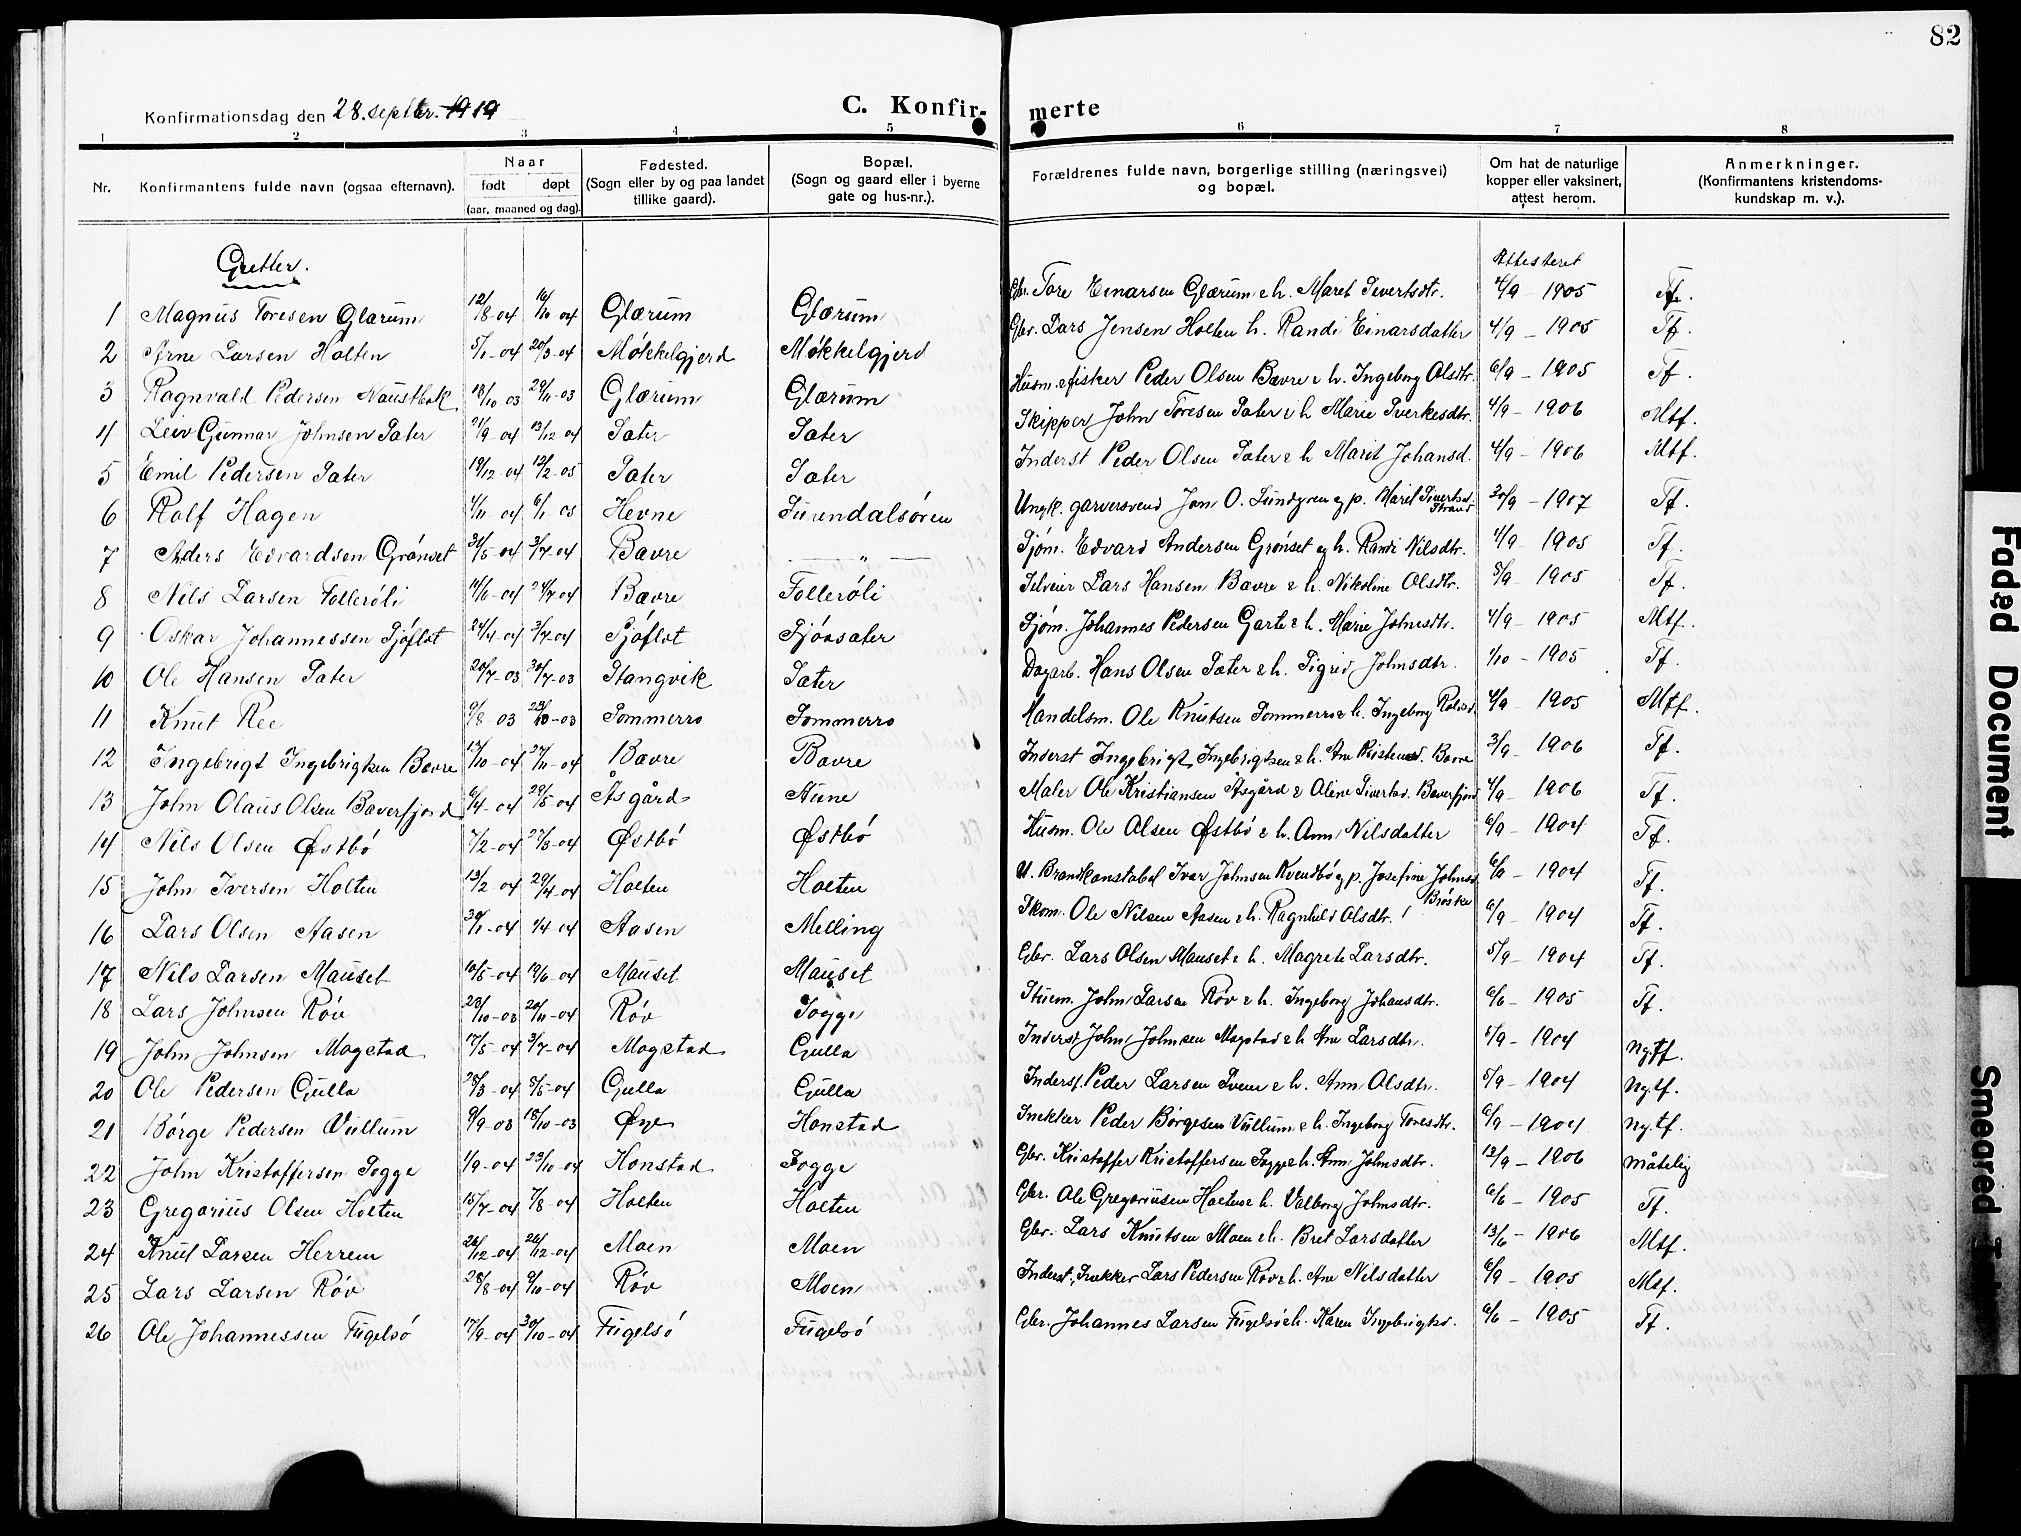 82
Konfirmationsdag den 28. septbr. 1919
C. Konfirmerte
1 2 3 4 5 6 7 8
Nr. Konfirmantens fulde navn (ogsaa efternavn). Naar født døpt (aar, maaned og dag). Fødested. (Sogn eller by og paa landet tillike gaard). Bopæl. (Sogn og gaard eller i byerne gate og hus-nr.). Forældrenes fulde navn, borgerlige stilling (næringsvei) og bopæl. Om hat de naturlige kopper eller vaksinert, attest herom. Anmerkninger. (Konfirmantens kristendoms-kundskap m. v.).
Gutter. Attesteret
1 Magnus Toresen Glærum 12/8-04 16/10 04 Glærum Glærum Gbr. Tore Einarsen Glærum & h. Maret Sivertsdtr. 4/9 - 1905 Tf.
2 Arne Larsen Holten 5/1-04 20/3-04 Møkkelgjerd Møkkelgjerd Gbr. Lars Jensen Holten h. Randi Einarsdatter 4/9 - 1905 Tf.
3 Ragnvald Pedersen Naustbak 18/10 03 29/11-03 Glærum Glærum Husm. & fisker Peder Olsen Bævre & h. Ingeborg Olsdtr. 6/9 - 1905 Tf.
4 Leiv Gunnar Johnsen Sæter 21/9-04 13/12 04 Sæter Sæter Skipper John Toresen Sæter & h Marie Sverkesdtr. 4/9 - 1906 Mtf.
5 Emil Pedersen Sæter 19/12-04 12/2-05 Sæter Sæter Inderst Peder Olsen Sæter & h Marit Johansd. 4/9 - 1906 Mtf.
6 Rolf Hagen 4/11 04 6/1 05 Hevne Surendalsøren Ungk. garversvend Jon O. Lundgren g p. Marit Sivertsd. Strand 20/9 - 1907 Tf.
7 Anders Edvardsen Grønset 31/5-04 3/7-04 Bævre — " — Sjøm. Edvard Andersen Grønset og h. Randi Nilsdtr. 4/9 - 1905 Tf.
8 Nils Larsen Follerøli 11/6-04 24/7-04 Bævre Follerøli Selveier Lars Hansen Bævre & h. Nikoline Olsdtr. 8/9 - 1905 Tf.
9 Oskar Johannessen Sjøflot 24/4-04 3/7-04 Sjøflot Sjøasæter Sjøm. Johannes Pedersen Garte & h. Marie Johnsdtr. 4/9 - 1905 Mtf.
10 Ole Hansen Sæter 20/7-03 30/7-03 Stangvik Sæter Dagarb. Hans Olsen Sæter & h. Sigrid Johnsdtr. 1/10 - 1905 Tf.
11 Knut Ree 9/8 03 Sommerro Sommerro Handelsm. Ole Knutsen Sommerro & h. Ingeborg 4/9 - 1905 Mtf.
12 Ingebrigt Ingebrigtsen Bævre 17/10-04 27/11-04 Bævre Bævre Inderst Ingebrigt Ingebrigtsen & h. Ane Kristensd. Bævre 3/9 - 1906 Tf.
13 John Olaus Olsen Bæverfjord 6/4-04 29/5-04 Åsgård Aune Maler Ole Kristiansen Åsgård & Oline Sivertsd. Bæverfjord 4/9 - 1906 Tf.
14 Nils Olsen Østbø 7/2-04 27/3-04 Østbø Østbø Husm. Ole Olsen Østbø & h. Anne Nilsdatter 6/9 - 1904 Tf.
15 John Iversen Holten 13/2 04 29/4-04 Holten Holten U. Brandkonstabel Ivar Johnsen Kvendbø g p. Josefine Johnsd. Brøske 6/9 - 1904 Tf.
16 Lars Olsen Aasen 30/1-04 4/4-04 Aasen Melling Skom. Ole Nilsen Aasen & h. Ragnhild Olsdtr. 6/9 - 1904 Tf.
17 Nils Larsen Mauset 10/5-04 19/6-04 Mauset Mauset Gbr. Lars Olsen Mauset & h. Magrete Larsdtr. 5/9 - 1904 Tf.
18 Lars Johnsen Røv 23/10-03 20/11-04 Røv Sogge Stuem. John Larsen Røv & h. Ingeborg Johansdtr. 6/6 - 1905 Tf.
19 John Johnsen Mogstad 17/5-04 3/7-04 Mogstad Gulla Inderst John Johnsen Mogstad & h Ane Larsdtr. 5/9 - 1904 Ng.tf.
20 Ole Pedersen Gulla 28/3-04 8/5-04 Gulla Gulla Inderst. Peder Larsen Svean & h. Ann Olsdtr. 5/9 - 1904 Ng.tf.
21 Børge Pedersen Vullum 9/9 03 18/10-03 Øye Honstad Snekker Peder Børgesen Vullum & h. Ingeborg Toresdtr. 6/9 - 1904 Ng.tf.
22 John Kristoffersen Sogge 1/9-04 23/10-04 Honstad Sogge Gbr. Kristoffer Kristoffersen Sogge & h. Ann Johnsdtr. 13/9 - 1906 Måtelig
23 Gregorius Olsen Holten 15/7-04 7/8-04 Holten Holten Gbr. Ole Gregoriusen Holten & h. Valborg Johnsdtr. 6/6 - 1905 Tf.
24 Knut Larsen Herrem 26/12-04 Moen Moen Gbr. Lars Knutsen Moen & h. Bret Larsdatter 13/6 - 1906 Mtf.
25 Lars Larsen Røv 28/8-04 9/10-04 Røv Moen Inderst, Snekker Lars Pedersen Røv & h. Ane Nilsdatter 6/9 - 1905 Mtf.
26 Ole Johannessen Fugelsø 17/9-04 30/10-04 Fugelsø Fugelsø Gbr. Johannes Larsen Fugelsø & h. Karen Ingebrigtsd. 6/6 - 1905 Tf.
Faded Document
Smeared